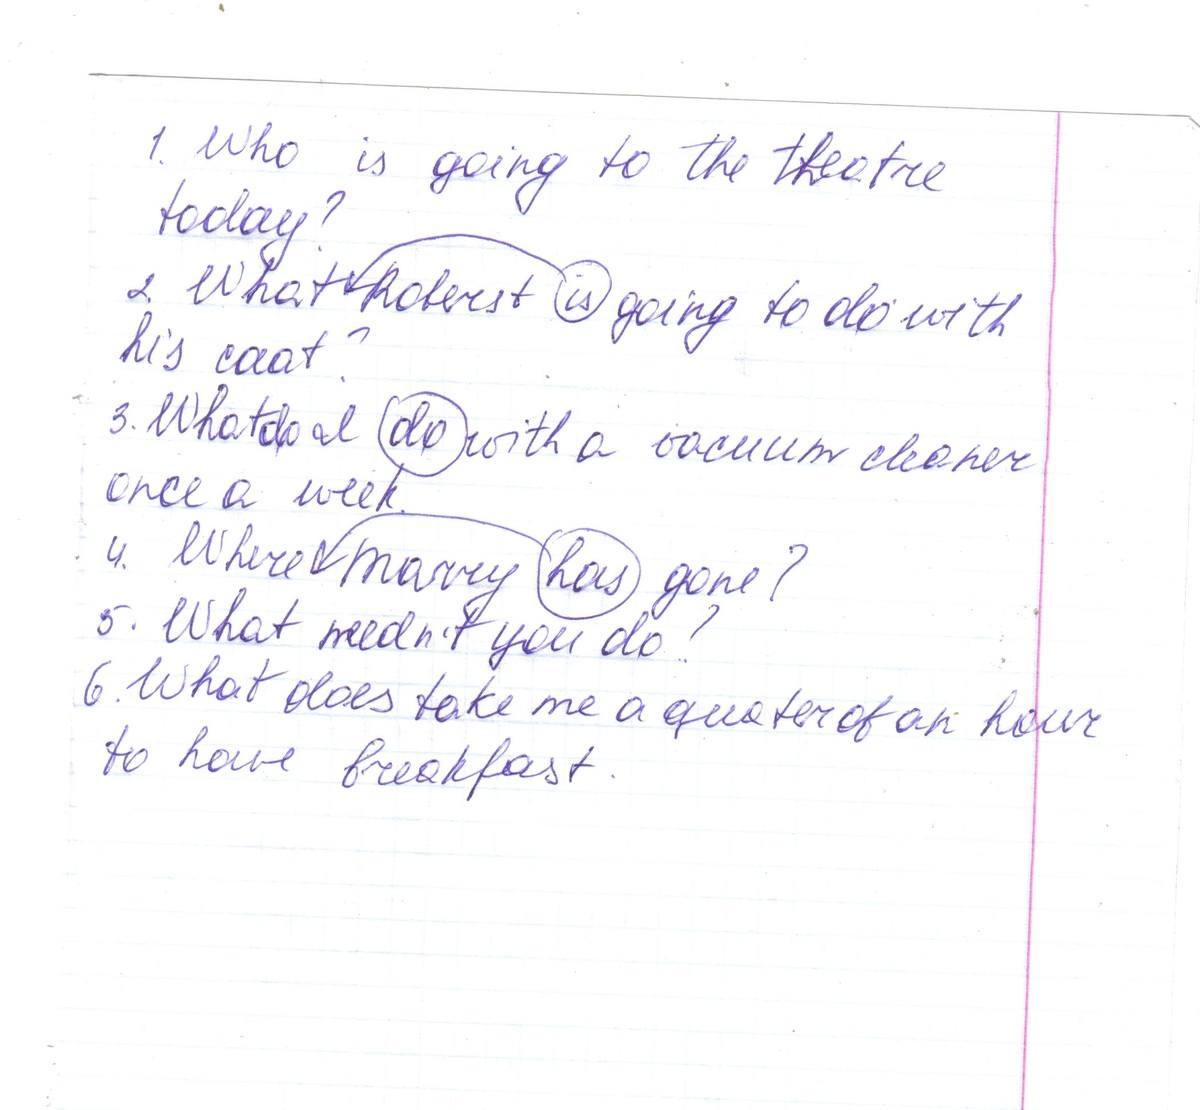 1. Who is going to the theatre
today?
2. What Roberst is going to do with
his caat?
3. What do I do with a vacuum cleaner
once a week.
4. Where Marry has gone?
5. What needn't you do?
6. What does take me a quater of an hour
to have breakfast.